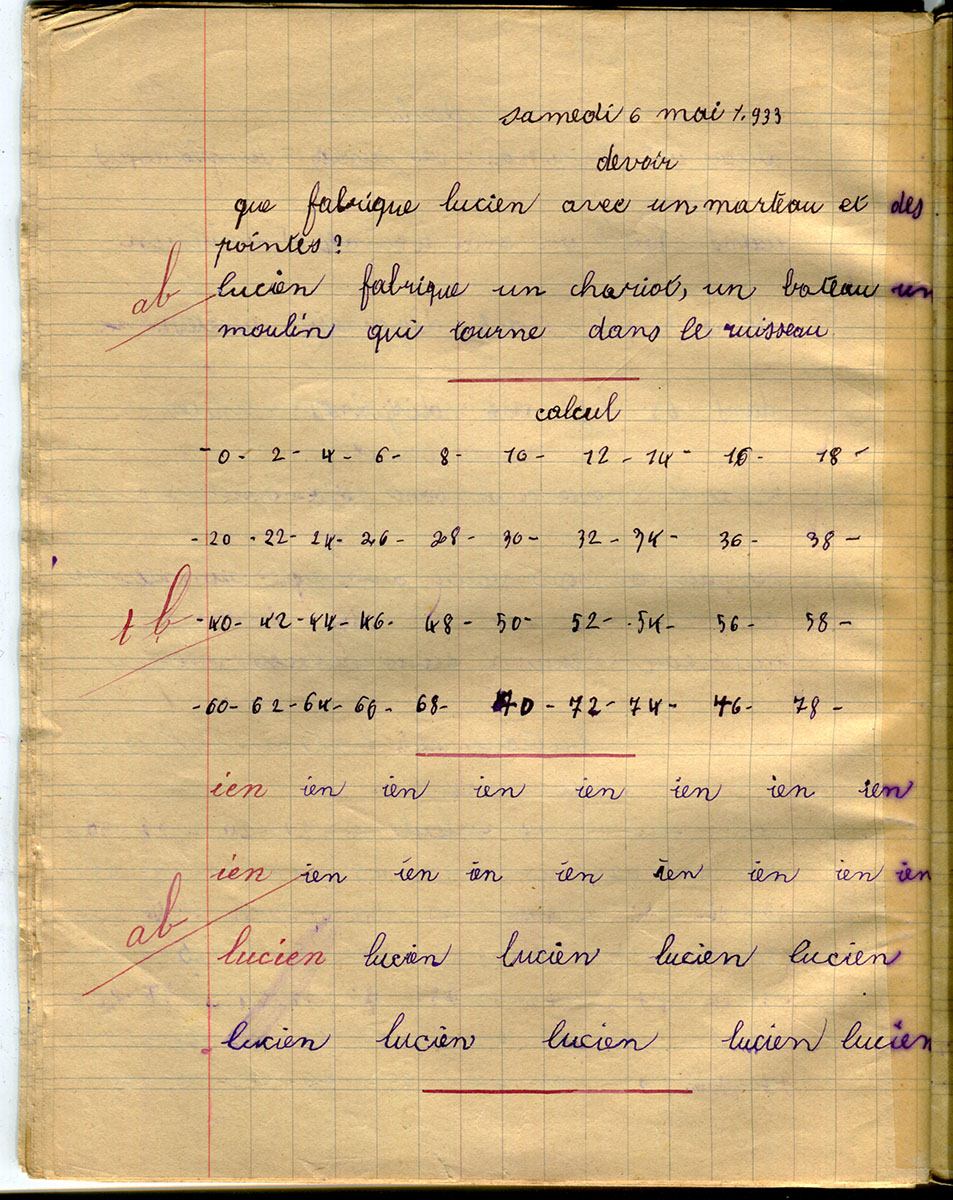 samedi 6 mai 1.933
devoir
que fabrique lucien avec un marteau et des
pointes?
ab lucien fabrique un chariot, un bateau un
moulin qui tourne dans le ruisseau
calcul
- 0 - 2 - 4 - 6 - 8 - 10 - 12 - 14 - 16 - 18 -
- 20 - 22 - 24 - 26 - 28 - 30 - 32 - 34 - 36 - 38 -
tb - 40 - 42 - 44 - 46 - 48 - 50 - 52 - 54 - 56 - 58 -
- 60 - 62 - 64 - 66 - 68 - 70 - 72 - 74 - 76 - 78 -
ien ien ien ien ien ien ien ien
ien ien ien ien ien ien ien ien ien
ab lucien lucien lucien lucien lucien
lucien lucien lucien lucien lucien